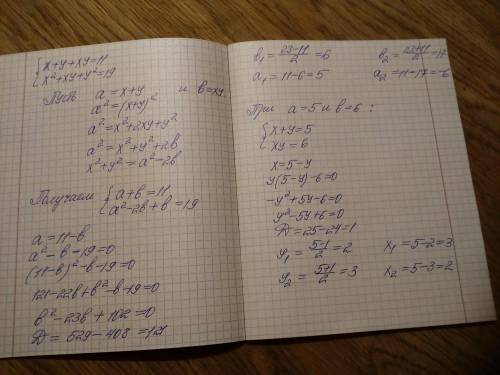 {x+y+xy=11
x²+xy+y²=19
Пусть a=x+y и b=xy
a²=(x+y)²
a²=x²+2xy+y²
a²=x²+y²+2b
x²+y²=a²-2b
Получаем {a+b=11
a²-2b+b=19
a=11-b
a²-b-19=0
(11-b)²-b-19=0
121-22b+b²-b-19=0
b²-23b+102=0
D=529-408=121
b₁=23-11/2=6 b₂=23+11/2=17
a₁=11-6=5 a₂=11-17=-6
При a=5 и b=6:
{x+y=5
xy=6
x=5-y
y(5-y)-6=0
-y²+5y-6=0
y²-5y+6=0
D=25-24=1
y₁=5-1/2=2 x₁=5-2=3
y₂=5+1/2=3 x₂=5-3=2